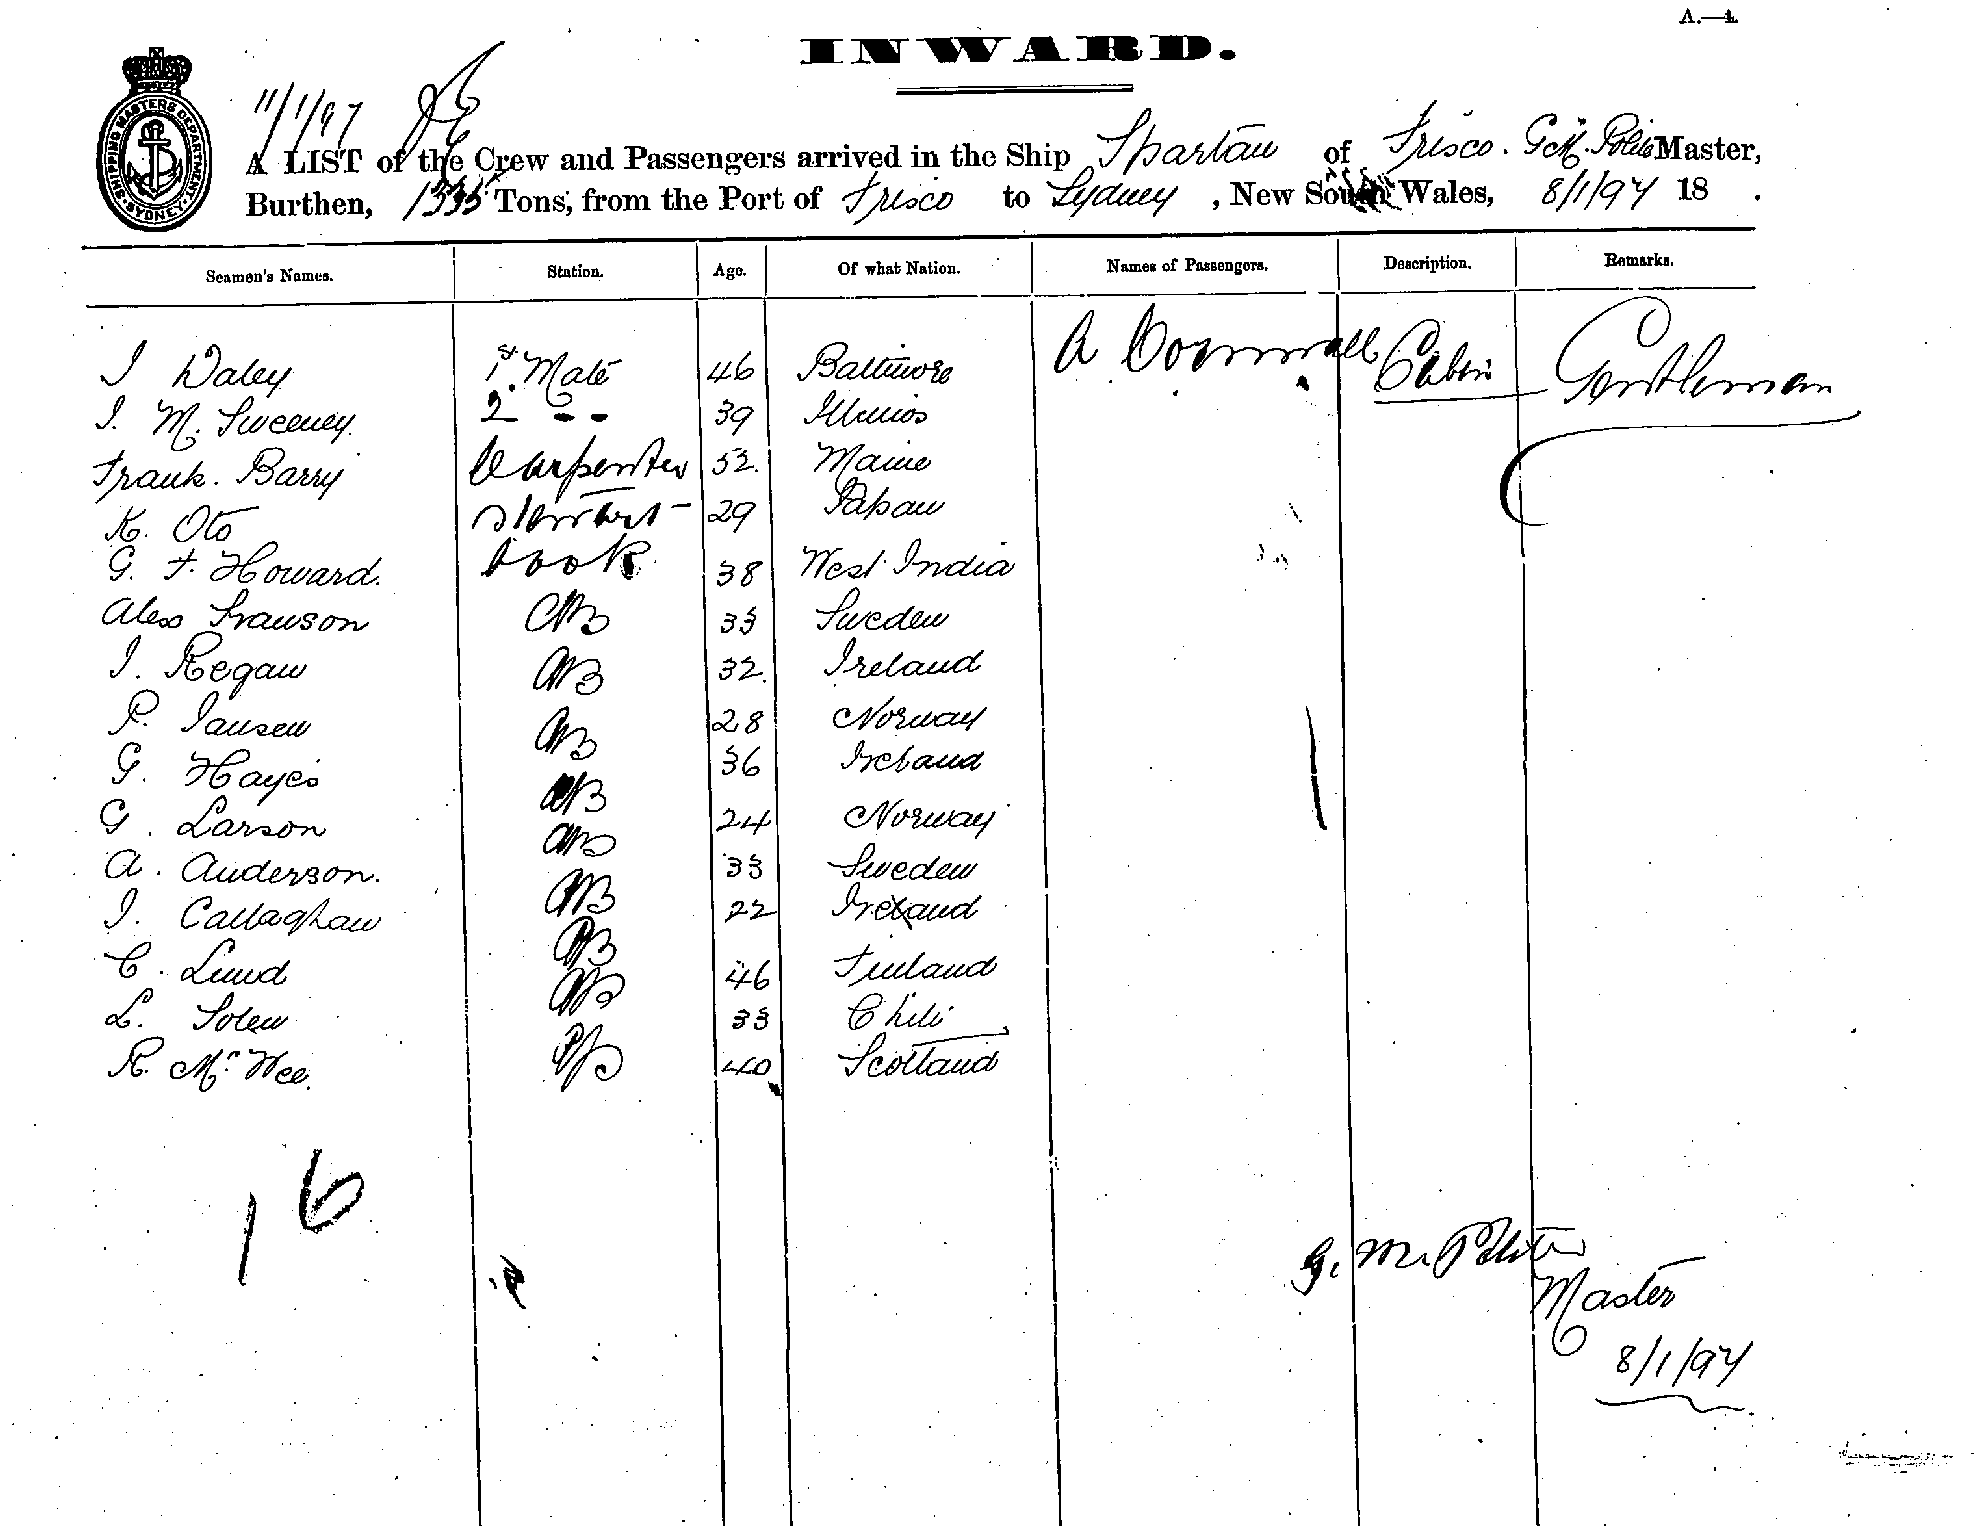 A.—4.
INWARD.
SHIPPING MASTERS DEPARTMENT SYDNEY
11/1/97
A LIST of the Crew and Passengers arrived in the Ship Spartan of Frisco. G. M. Master,
Burthen, 1335 Tons, from the Port of Frisco to Sydney, New South Wales, 8/1/97 18 .
Seamen's Names. Station. Age. Of what Nation. Names of Passengers. Description. Remarks.
J Daley 1st Mate 46 Baltimore A Cornwall Cabin Gentleman
J. M. Sweeney. 2 " " 39 Illinios
Frank. Barry Carpenter 52. Maine
K. Oto Stewart 29 Japan
G. F. Howard. Cook 38 West India
Alex Franson AB 33 Sweden
J. Regan AB 32. Ireland
P. Jansen AB 28 Norway
G. Hayes AB 36 Ireland
G. Larson AB 24 Norway
A. Anderson. AB 33 Sweden
J. Callaghan AB 22 Ireland
C. Lund AB 46 Finland
L. Solen AB 33 Chili
R. Mc Nee. AB 40 Scotland
16
G. M.
Master
8/1/97